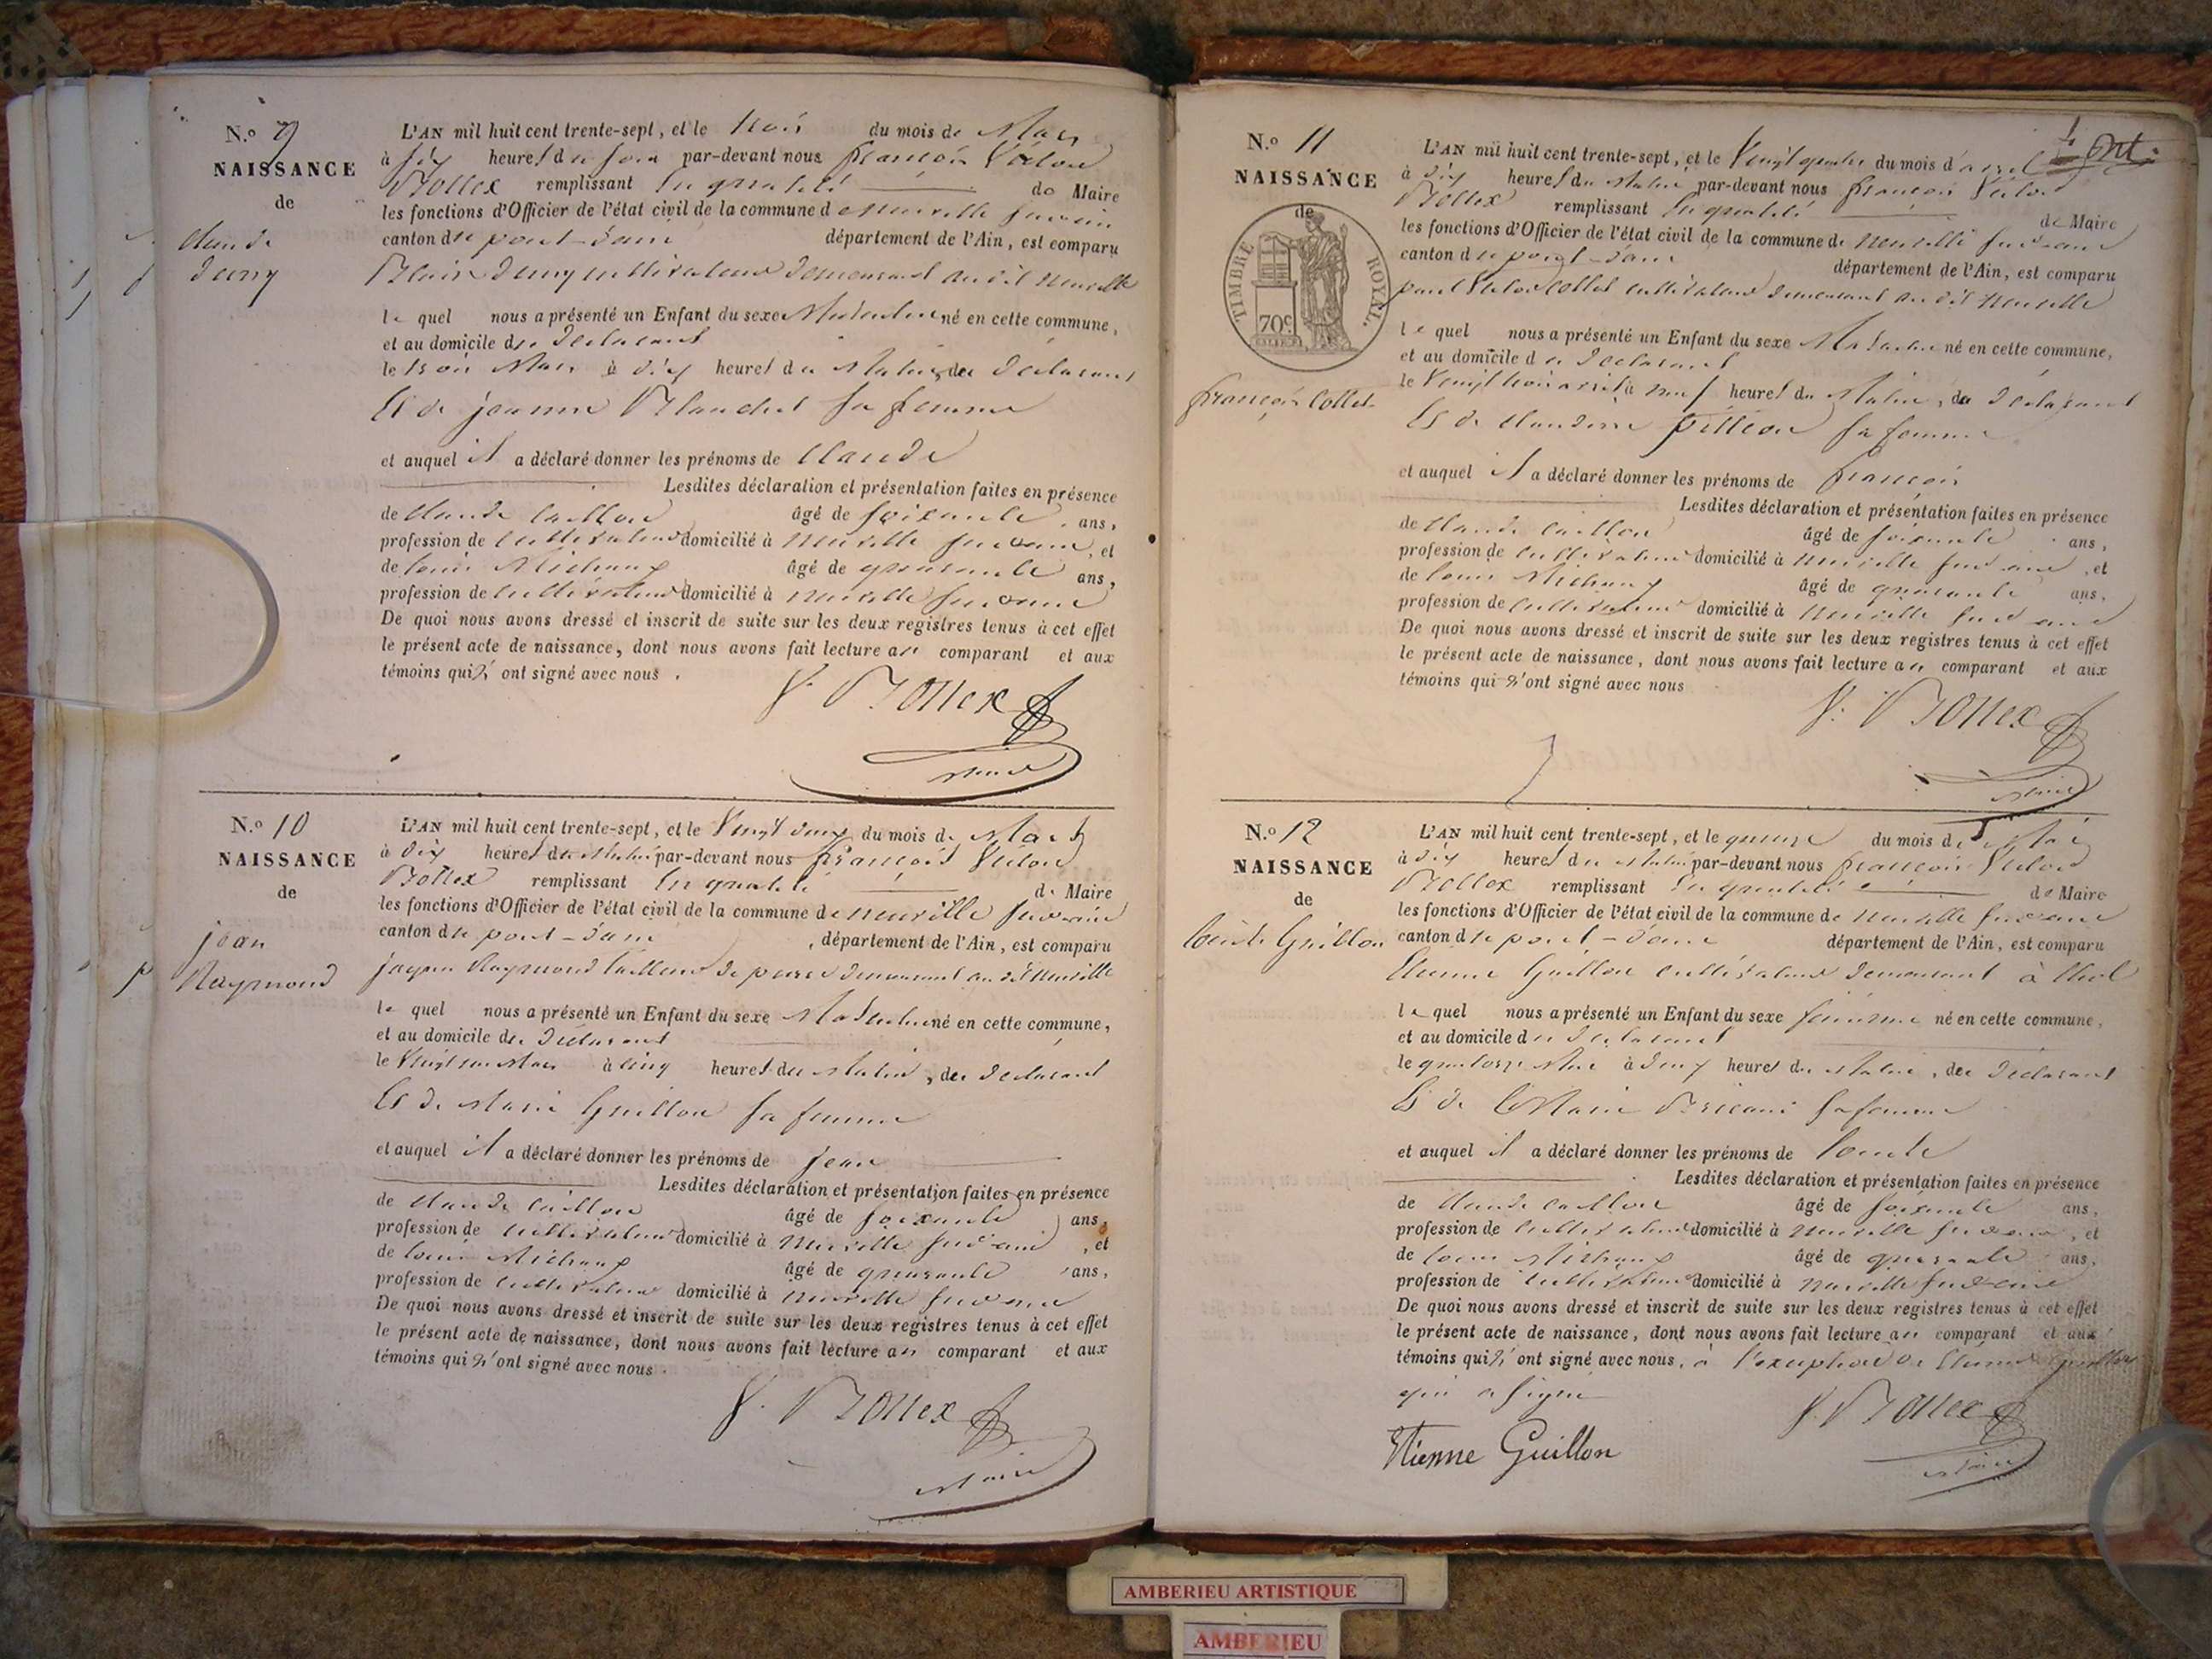 N.o 9
NAISSANCE
de
Claude
Deny
L'AN mil huit cent trente-sept, et le trois du mois de Mars
à six heures du soir par-devant nous françois Victor
Bollex remplissant en qualité de Maire
les fonctions d'Officier de l'état civil de la commune de neuville sur ain
canton de pont-d'ain département de l'Ain, est comparu
cultivateur demeurant au dit neuville
le quel nous a présenté un Enfant du sexe Masculin né en cette commune,
et au domicile du Déclarant
le trois Mars à dix heures du Matin, du Déclarant
Et de jeanne Blanchet sa femme
et auquel il a déclaré donner les prénoms de Claude
Lesdites déclaration et présentation faites en présence
de Claude Caillon âgé de soixante ans,
profession de cultivateur domicilié à neuville sur ain, et
de louis Michaux âgé de quarante ans,
profession de cultivateur domicilié à neuville sur ain
De quoi nous avons dressé et inscrit de suite sur les deux registres tenus à cet effet
le présent acte de naissance, dont nous avons fait lecture au comparant et aux
témoins qui n'ont signé avec nous.
V. Bollex
maire
N.o 10
NAISSANCE
de
jean
Raymond
L'AN mil huit cent trente-sept, et le Vingt deux du mois de Mars
à dix heures du Matin par-devant nous françois Victor
Bollex remplissant en qualité de Maire
les fonctions d'Officier de l'état civil de la commune de neuville sur ain
canton de pont-d'ain, département de l'Ain, est comparu
Raymond tailleur de pierre demeurant au dit neuville
le quel nous a présenté un Enfant du sexe Masculin né en cette commune,
et au domicile du Déclarant
le Mars à cinq heures du Matin, du Déclarant
Et de Marie Guillon sa femme
et auquel il a déclaré donner les prénoms de jean
Lesdites déclaration et présentation faites en présence
de Claude Caillon âgé de soixante ans,
profession de cultivateur domicilié à neuville sur ain, et
de louis Michaux âgé de quarante ans,
profession de cultivateur domicilié à neuville sur ain
De quoi nous avons dressé et inscrit de suite sur les deux registres tenus à cet effet
le présent acte de naissance, dont nous avons fait lecture au comparant et aux
témoins qui n'ont signé avec nous.
V. Bollex
maire
N.o 11
NAISSANCE
de
TIMBRE ROYAL.
70c
françois Collet
L'AN mil huit cent trente-sept, et le Vingt quatre du mois d'avril
à dix heures du Matin par-devant nous françois Victor
Bollex remplissant en qualité de Maire
les fonctions d'Officier de l'état civil de la commune de neuville sur ain
canton de pont-d'ain département de l'Ain, est comparu
Collet cultivateur demeurant au dit neuville
le quel nous a présenté un Enfant du sexe Masculin né en cette commune,
et au domicile du Déclarant
le Vingt trois avril à neuf heures du Matin, du Déclarant
Et de Claudine sa femme
et auquel il a déclaré donner les prénoms de françois
Lesdites déclaration et présentation faites en présence
de Claude Caillon âgé de soixante ans,
profession de cultivateur domicilié à neuville sur ain, et
de louis Michaux âgé de quarante ans,
profession de cultivateur domicilié à neuville sur ain
De quoi nous avons dressé et inscrit de suite sur les deux registres tenus à cet effet
le présent acte de naissance, dont nous avons fait lecture au comparant et aux
témoins qui n'ont signé avec nous
V. Bollex
maire
N.o 12
NAISSANCE
de
Guillon
L'AN mil huit cent trente-sept, et le quinze du mois de Mai
à dix heures du Matin par-devant nous françois Victor
Bollex remplissant en qualité de Maire
les fonctions d'Officier de l'état civil de la commune de neuville sur ain
canton de pont-d'ain département de l'Ain, est comparu
Etienne Guillon cultivateur demeurant à Thol
le quel nous a présenté un Enfant du sexe féminin né en cette commune,
et au domicile du Déclarant
le quatorze Mai à deux heures du Matin, du Déclarant
Et de Marie sa femme
et auquel il a déclaré donner les prénoms de
Lesdites déclaration et présentation faites en présence
de Claude Caillon âgé de soixante ans,
profession de cultivateur domicilié à neuville sur ain, et
de louis Michaux âgé de quarante ans,
profession de cultivateur domicilié à neuville sur ain
De quoi nous avons dressé et inscrit de suite sur les deux registres tenus à cet effet
le présent acte de naissance, dont nous avons fait lecture au comparant et aux
témoins qui n'ont signé avec nous, à l'exception de Etienne Guillon
qui a signé
V. Bollex
Etienne Guillon
maire
AMBERIEU ARTISTIQUE
AMBERIEU